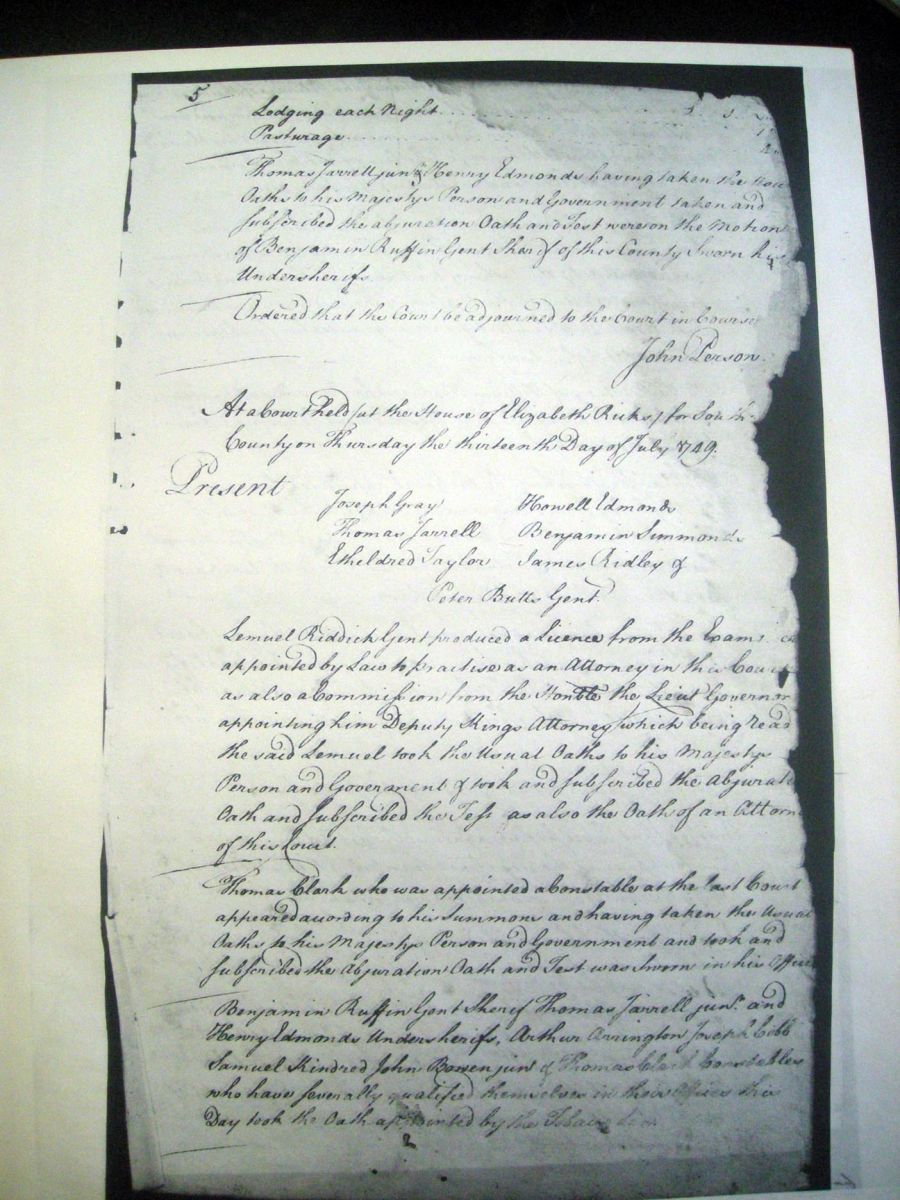 5
Lodging each Night
Pasturage
Thomas Jarrell junr & Henry Edmonds having taken the
Oaths to his Majestys Person and Government taken and
subscribed the abjuration Oath and Test were on the Motion
of Benjamin Ruffin Gent Sherif of this County Sworn his
Undersherifs.
Ordered that the Court be adjourned to the Court in Course
John Person.
At a Court held (at the House of Elizabeth Ricks) for South
County on Thursday the thirteenth Day of July 1749.
Present
Joseph Gray Howell Edmonds
Thomas Jarrell Benjamin Simmonds
Etheldred Taylor James Ridley &
Peter Butts Gent.
Lemuel Riddick Gent produced a Licence from the
appointed by Law to practise as an Attorney in this
as also a Commission from the Honble the Lieut Governor
appointing him Deputy Kings Attorney which being read
the said Lemuel took the Usual Oaths to his Majestys
Person and Government & took and subscribed the Abjurat
Oath and subscribed the Test as also the Oath of an Attorn
of this Court.
Thomas Clark who was appointed a Constable at the last Court
appeared according to his Summons and having taken the Usual
Oaths to his Majestys Person and Government and took and
subscribed the Abjuration Oath and Test was Sworn in his
Benjamin Ruffin Gent Sherif Thomas Jarrell junr. and
Henry Edmonds Undersherifs, Arthur Arrington Joseph Cobb
Samuel Kindred John Bowen junr & Thomas Clark Constables
who have severally qualified themselves in their Offices this
Day took the Oath appointed by the
2